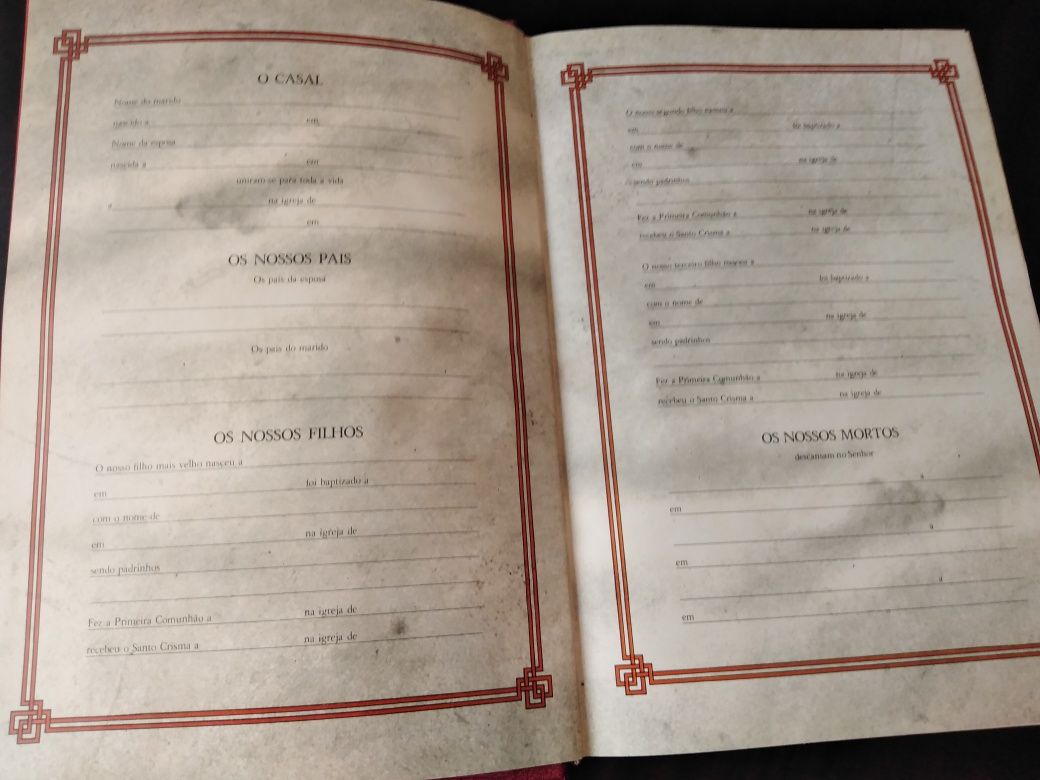 O CASAL
Nome do marido
nascido a em
Nome da esposa
nascida a em
uniram-se para toda a vida
a na igreja de
em
OS NOSSOS PAIS
Os pais da esposa
Os pais do marido
OS NOSSOS FILHOS
O nosso filho mais velho nasceu a
em foi baptizado a
com o nome de
em na igreja de
sendo padrinhos
Fez a Primeira Comunhão a na igreja de
recebeu o Santo Crisma a na igreja de
O nosso segundo filho nasceu a
em foi baptizado a
com o nome de
em na igreja de
sendo padrinhos
Fez a Primeira Comunhão a na igreja de
recebeu o Santo Crisma a na igreja de
O nosso terceiro filho nasceu a
em foi baptizado a
com o nome de
em na igreja de
sendo padrinhos
Fez a Primeira Comunhão a na igreja de
recebeu o Santo Crisma a na igreja de
OS NOSSOS MORTOS
descansam no Senhor
a
em
a
em
a
em